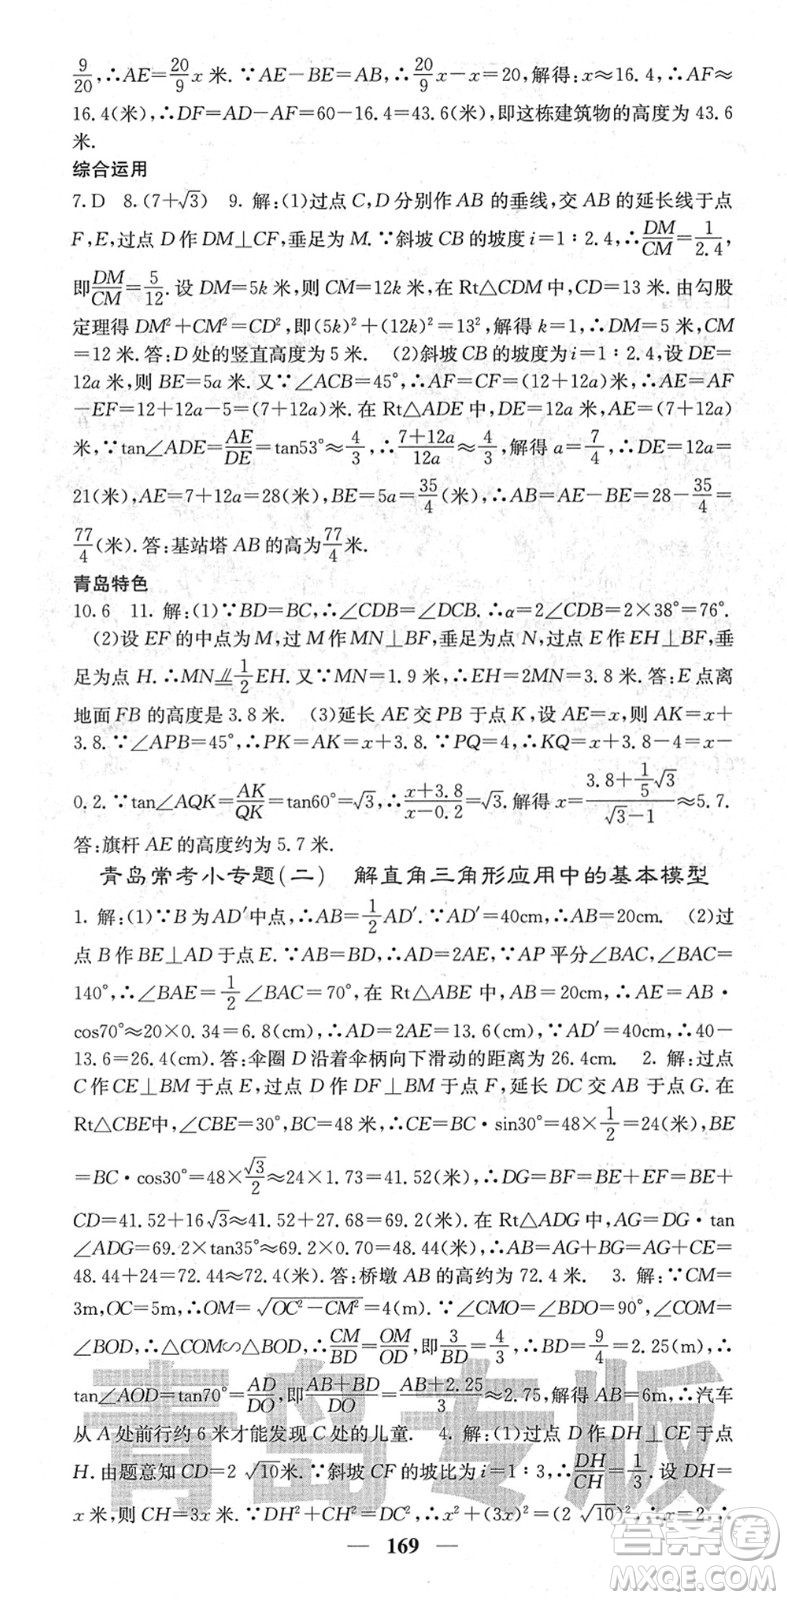 9/20,∴AE=20/9x米.∵AE-BE=AB,∴20/9x-x=20,解得:x≈16.4,∴AF≈
16.4(米),∴DF=AD-AF=60-16.4=43.6(米),即这栋建筑物的高度为43.6
米.
综合运用
7.D 8.(7+√3) 9.解:(1)过点C,D分别作AB的垂线,交AB的延长线于点
F,E,过点D作DM⊥CF,垂足为M.∵斜坡CB的坡度i=1∶2.4,∴DM/CM=1/2.4,
即DM/CM=5/12.设DM=5k米,则CM=12k米,在Rt△CDM中,CD=13米.由勾股
定理得DM²+CM²=CD²,即(5k)²+(12k)²=13²,解得k=1,∴DM=5米,CM
=12米.答:D处的竖直高度为5米. (2)斜坡CB的坡度为i=1∶2.4,设DE=
12a米,则BE=5a米.又∵∠ACB=45°,∴AF=CF=(12+12a)米,∴AE=AF
-EF=12+12a-5=(7+12a)米.在Rt△ADE中,DE=12a米,AE=(7+12a)
米,∵tan∠ADE=AE/DE=tan53°≈4/3,∴(7+12a)/12a≈4/3,解得a=7/4,∴DE=12a=
21(米),AE=7+12a=28(米),BE=5a=35/4(米),∴AB=AE-BE=28-35/4=
77/4(米).答:基站塔AB的高为77/4米.
青岛特色
10.6 11.解:(1)∵BD=BC,∴∠CDB=∠DCB.∴α=2∠CDB=2×38°=76°.
(2)设EF的中点为M,过M作MN⊥BF,垂足为点N,过点E作EH⊥BF,垂
足为点H.∴MN⫽1/2EH.又∵MN=1.9米,∴EH=2MN=3.8米.答:E点离
地面FB的高度是3.8米. (3)延长AE交PB于点K,设AE=x,则AK=x+
3.8.∵∠APB=45°,∴PK=AK=x+3.8.∵PQ=4,∴KQ=x+3.8-4=x-
0.2.∵tan∠AQK=AK/QK=tan60°=√3,∴(x+3.8)/(x-0.2)=√3.解得x=(3.8+1/5√3)/(√3-1)≈5.7.
答:旗杆AE的高度约为5.7米.
青岛常考小专题(二) 解直角三角形应用中的基本模型
1.解:(1)∵B为AD′中点,∴AB=1/2AD′.∵AD′=40cm,∴AB=20cm. (2)过
点B作BE⊥AD于点E.∵AB=BD,∴AD=2AE,∵AP平分∠BAC,∠BAC=
140°,∴∠BAE=1/2∠BAC=70°,在Rt△ABE中,AB=20cm,∴AE=AB·
cos70°≈20×0.34=6.8(cm),∴AD=2AE=13.6(cm).∵AD′=40cm,∴40-
13.6=26.4(cm).答:伞圈D沿着伞柄向下滑动的距离为26.4cm. 2.解:过点
C作CE⊥BM于点E,过点D作DF⊥BM于点F,延长DC交AB于点G.在
Rt△CBE中,∠CBE=30°,BC=48米,∴CE=BC·sin30°=48×1/2=24(米),BE
=BC·cos30°=48×√3/2≈24×1.73=41.52(米),∴DG=BF=BE+EF=BE+
CD=41.52+16√3≈41.52+27.68=69.2(米).在Rt△ADG中,AG=DG·tan
∠ADG=69.2×tan35°≈69.2×0.7=48.44(米),∴AB=AG+BG=AG+CE=
48.44+24=72.44≈72.4(米).答:桥墩AB的高约为72.4米. 3.解:∵CM=
3m,OC=5m,∴OM=√(OC²-CM²)=4(m).∵∠CMO=∠BDO=90°,∠COM=
∠BOD,∴△COM∽△BOD,∴CM/BD=OM/OD,即3/BD=4/3,∴BD=9/4=2.25(m),∴
tan∠AOD=tan70°=AD/DO,即(AB+BD)/DO=(AB+2.25)/3≈2.75,解得AB=6m,∴汽车
从A处前行约6米才能发现C处的儿童. 4.解:(1)过点D作DH⊥CE于点
H.由题意知CD=2√10米.∵斜坡CF的坡比为i=1∶3,∴DH/CH=1/3.设DH=
x米,则CH=3x米.∵DH²+CH²=DC²,∴x²+(3x)²=(2√10)²,∴x=2,∴
169
青岛专版
答案圈
MXQE.COM